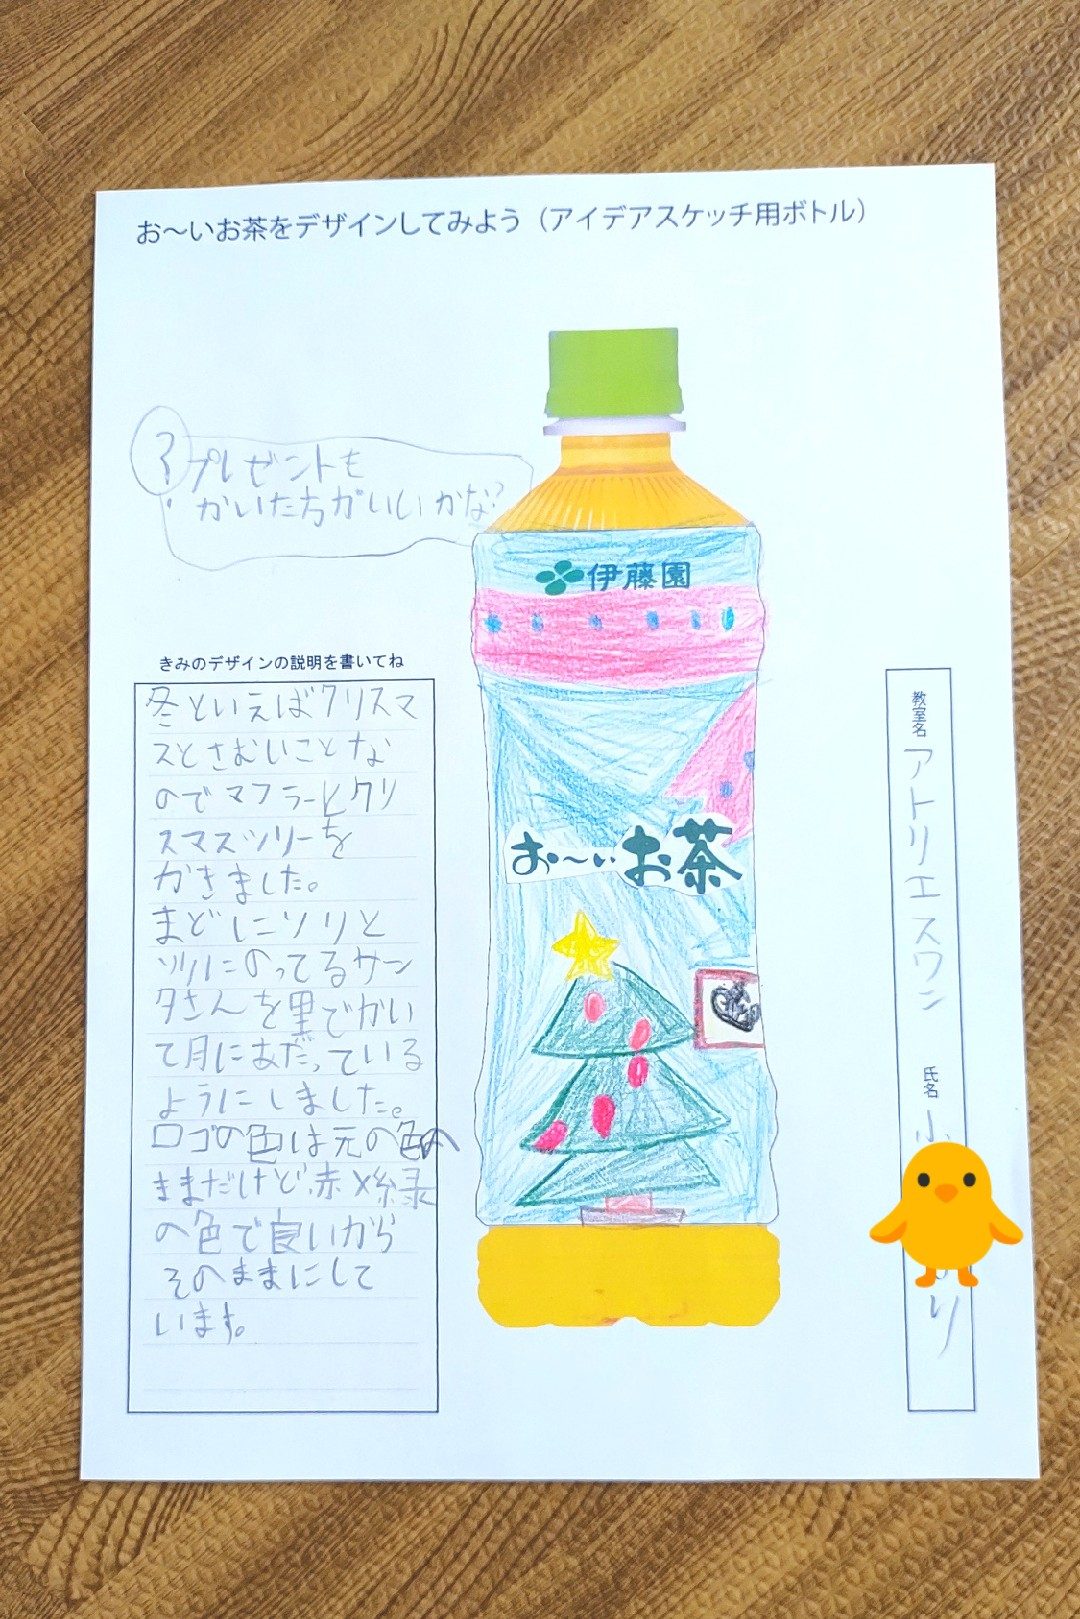 お～いお茶をデザインしてみよう（アイデアスケッチ用ボトル）
? プレゼントも
かいた方がいいかな?
伊藤園
お～いお茶
きみのデザインの説明を書いてね
冬といえばクリスマ
スとさむいことな
のでマフラーとクリ
スマスツリーを
かきました。
まどにソリと
ソリにのってるサン
タさんを黒でかい
て月にあたっている
ようにしました。
ロゴの色は元の色の
ままだけど赤×緑
の色で良いから
そのままにして
います。
教室名
アトリエスワン
氏名
小
り